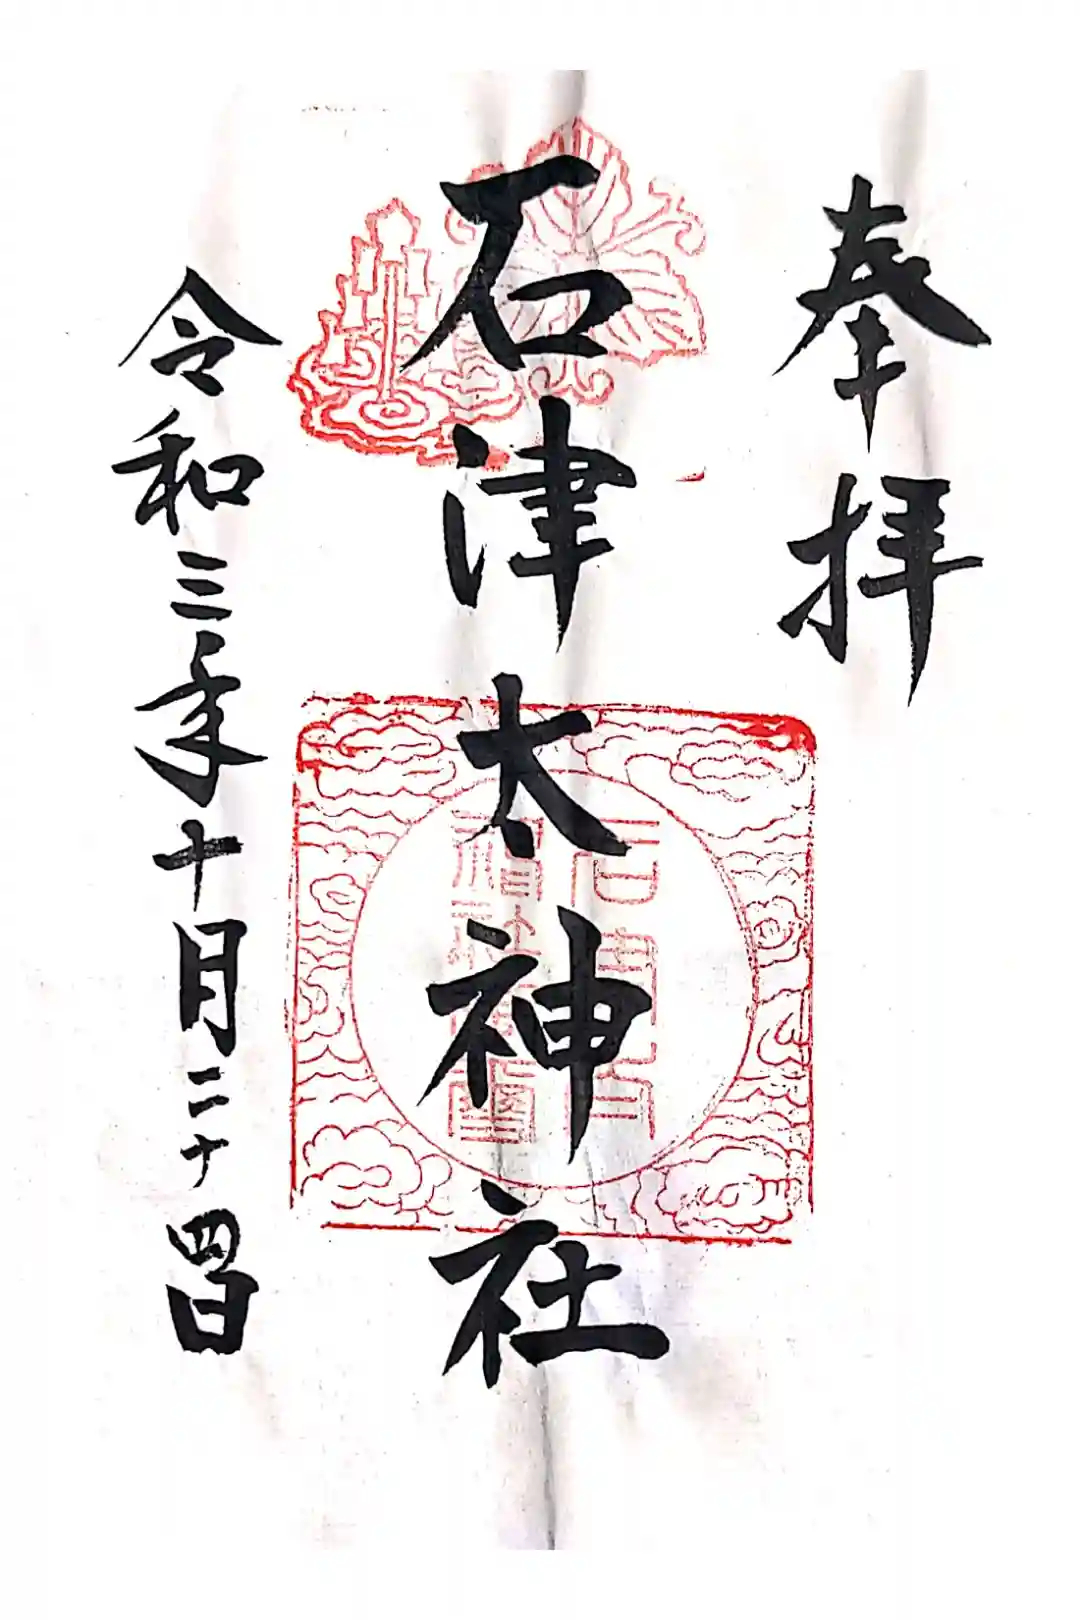 奉拝
石津太神社
令和三年十月二十四日